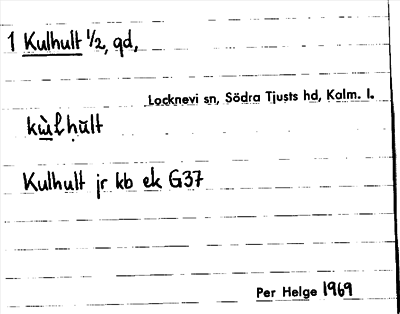 1 Kulhult 1/2, gd,
Locknevi sn, Södra Tjusts hd, Kalm. l.
kὼɫḥŭlt
Kulhult jr kb ek G37
Per Helge 1969